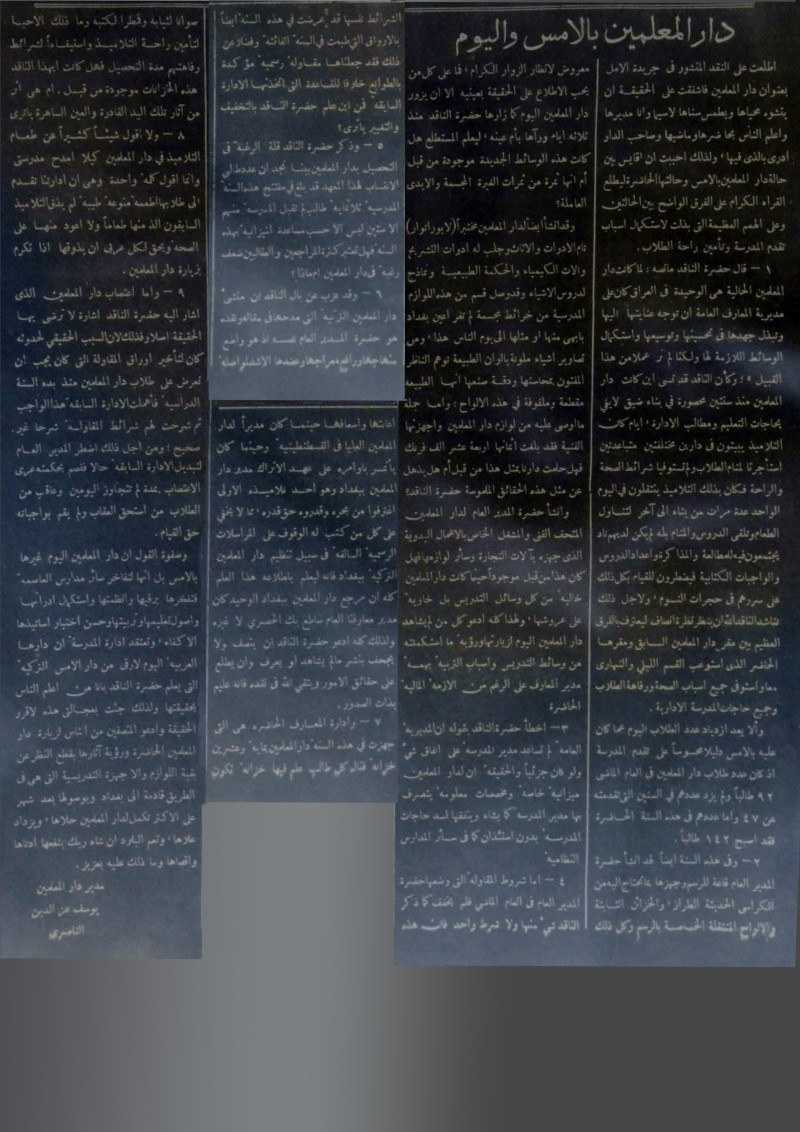 دار المعلمين بالامس واليوم
اطلعت على النقد المنشور في جريدة الامل
بعنوان دار المعلمين فاشفقت على الحقيقة ان
يتشوه محياها ويطمس سناها لاسيما وانا مديرها
واعلم الناس بحاضرها وماضيها وصاحب الدار
ادرى بالذي فيها، ولذلك احببت ان اقايس بين
حالة دار المعلمين بالامس وحالتها الحاضرة ليطلع
القراء الكرام على الفرق الواضح بين الحالتين
وعلى الهمم العظيمة التي بذلت لاستكمال اسباب
تقدم المدرسة وتأمين راحة الطلاب.
١ – قال حضرة الناقد مانصه: لما كانت دار
المعلمين الحالية هي الوحيدة في العراق كان على
مديرية المعارف العامة ان توجه عنايتها اليها
وتبذل جهدها في تحسينها وتوسيعها واستكمال
الوسائط اللازمة لها ولكنا لم نر عملا من هذا
القبيل » ؛ وكأن الناقد قد نسى اين كانت دار
المعلمين منذ سنتين محصورة في بناء ضيق لايفي
بحاجات التعليم ومطالب الادارة، ايام كان
التلاميذ يبيتون في دارين مختلفتين متباعدتين
استأجرتا لمنام الطلاب ولم تستوفيا شرائط الصحة
والراحة فكان بذلك التلاميذ يتنقلون في اليوم
الواحد عدة مرات من بناء الى آخر لتناول
الطعام وتلقى الدروس والمنام بله لم يكن لديهم ناد
يجتمعون فيه للمطالعة والمذاكرة واعداد الدروس
والواجبات الكتابية فيضطرون للقيام بكل ذلك
على سررهم في حجرات النوم، ولاجل ذلك
نناشد الناقد الله ان ينظر نظرة انصاف ليعترف بالفرق
العظيم بين مقر دار المعلمين السابق ومقرها
الحاضر الذي استوعب القسم الليلي والنهاري
معا واستوفى جميع اسباب الصحة ورفاهة الطلاب
وجميع حاجات المدرسة الادارية.
وألا يعد ازدياد عدد الطلاب اليوم عما كان
عليه بالامس دليلا محسوساً على تقدم المدرسة
اذ كان عدد طلاب دار المعلمين في العام الماضي
٩٢ طالباً ولم يزد عددهم في السنين التي تقدمته
عن ٤٧ واما عددهم في هذه السنة الحاضرة
فقد اصبح ١٤٢ طالباً.
٢ – وفي هذه السنة ايضاً قد انشأ حضرة
المدير العام قاعة للرسم وجهزها بما تحتاج اليه من
الكراسي الحديثة الطراز، والخزائن الثابتة
والالواح المتنقلة الخاصة بالرسم وكل ذلك
معروض لانظار الزوار الكرام، فما على كل من
يحب الاطلاع على الحقيقة بعينيه الا ان يزور
دار المعلمين اليوم كما زارها حضرة الناقد منذ
ثلاثة ايام ورآها بأم عينه، ليعلم المستطلع هل
كانت هذه الوسائط الجديدة موجودة من قبل
أم انها ثمرة من ثمرات الغيرة المجسمة والايدى
العاملة؟
وقد انشأ ايضاً لدار المعلمين مختبراً (لابوراتوار)
تام الادوات والاثاث وجلب له ادوات التشريح
والات الكيمياء والحكمة الطبيعية ونماذج
لدروس الاشياء وقد وصل قسم من هذه اللوازم
المدرسية من خرائط مجسمة لم تقر اعين بغداد
بابهى منها او مثلها الى يوم الناس هذا، وهي
تصاوير اشياء ملونة بالوان الطبيعة توهم الناظر
المفتون بمحاسنها ودقة صنعها انها الطبيعة
مقطعة وملفوفة في هذه الالواح؛ واما جملة
ما اوصى عليه من لوازم دار المعلمين واجهزتها
الفنية فقد بلغت اثمانها اربعة عشر الف فرنك
فهل حلمت دارنا بمثل هذا من قبل أم هل يذهل
عن مثل هذه الحقائق الملموسة حضرة الناقد؟
وانشأ حضرة المدير العام لدار المعلمين
المتحف الفني والمشغل الخاص بالاعمال اليدوية
الذي جهزه بآلات التجارة وسائر لوازمها فهل
كان هذا من قبل موجوداً حينما كانت دار المعلمين
خالية من كل وسائل التدريس بل خاوية
على عروشها، ولهذا كله أدعو كل من لم يشاهد
دار المعلمين اليوم لزيارتها ورؤية ما استكملته
من وسائط التدريس واسباب التربية بهمة
مدير المعارف على الرغم من الازمة المالية
الحاضرة
٣ – اخطأ حضرة الناقد بقوله ان المديرية
العامة لم تساعد مدير المدرسة على انفاق شيء
ولو كان جزئياً والحقيقة ان لدار المعلمين
ميزانية خاصة ومخصصات معلومة يتصرف
بها مدير المدرسة كما يشاء وينفقها لسد حاجات
المدرسة بدون استئذان كما في سائر المدارس
النظامية
٤ – أما شروط المقاولة التي وضعها حضرة
المدير العام في العام الماضي فلم يخفف كما ذكر
الناقد شيء منها ولا شرط واحد فان هذه
الشرائط نفسها قد عرضت في هذه السنة ايضاً
بالاوراق التي طبعت في السنة الفائتة وفضلا عن
ذلك فقد جعلناها مقاولة رسمية مؤكدة
بالطوابع خلافا للقاعدة التي اتخذتها الادارة
السابقة فمن اين علم حضرة الناقد بالتخفيف
والتغيير ياترى؟
٥ – وذكر حضرة الناقد قلة الرغبة في
التحصيل بدار المعلمين بينما نجد ان عدد طالبي
الانتساب لهذا المعهد قد بلغ في مفتتح هذه السنة
المدرسية ثلاثمائة طالب لم تقبل المدرسة منهم
الا ستين ليس الا حسب مساعدة الميزانية بهذه
السنة فهل تعتبر كثرة المراجعين والطالبين ضعف
رغبة في دار المعلمين ام ماذا؟
٦ – وقد عزب عن بال الناقد ان منشئ
دار المعلمين التركية التي مدحها في مقاله ونقده
هو حضرة المدير العام نفسه اذ هو واضع
منهاجها ورافع معراجها وعندها الاشد لواصلة
اعاشتها واسعافها حيثما كان مديراً لدار
المعلمين العليا في القسطنطينية وحيثما كان
يأتمر باوامره على عهد الاتراك مدير دار
المعلمين ببغداد وهو احد تلاميذه الاولى
اغترفوا من بحره وقدروه حق قدره، مما لا يخفي
على كل من كتب له الوقوف على المراسلات
الرسمية السالفة في سبيل تنظيم دار المعلمين
التركية ببغداد فانه ليعلم باطلاعه هذا العلم
كله ان مرجع دار المعلمين ببغداد الوحيد كان
مدير معارفنا العام ساطع بك الحصري لا غيره
ولذلك كله ادعو حضرة الناقد ان ينصف ولا
يجحف بنشر مالم يشاهد او يعرف وان يطلع
على حقائق الامور ويتقي الله في نقده فانه عليم
بذات الصدور.
٧ – وادارة المعارف الحاضرة هي التي
جهزت في هذه السنة دار المعلمين بمائة وعشرين
خزانة فنال كل طالب علم فيها خزانة تكون
صوانا لثيابه وقمطرا لكتبه وما ذلك الاحبا
لتأمين راحة التلاميذ واستيفاءاً لشرائط
رفاهتهم مدة التحصيل فهل كانت ايهذا الناقد
هذه الخزانات موجودة من قبل. ام هي أثر
من آثار تلك اليد القادرة والعين الساهرة ياترى
٨ – ولا اقول شيئاً كثيراً عن طعام
التلاميذ في دار المعلمين كيلا امدح مدرستي
وانما اقول كلمة واحدة وهي ان ادارتنا تقدم
الى طلابها اطعمة متنوعة طيبة لم يذق التلاميذ
السابقون الذ منها طعاماً ولا اعود منها على
الصحة ويحق لكل عربي ان يذوقها اذا تكرم
بزيارة دار المعلمين.
٩ – واما اعتصاب دار المعلمين الذي
اشار اليه حضرة الناقد اشارة لا ترضى بها
الحقيقة اصلا وفذلك لان السبب الحقيقي لحدوثه
كان لتأخير اوراق المقاولة التي كان يجب ان
تعرض على طلاب دار المعلمين منذ بدء السنة
الدراسية فأهملت الادارة السابقة هذا الواجب
ثم شرحت لهم شرائط المقاولة شرحا غير
صحيح؛ ومن اجل ذلك اضطر المدير العام
لتبديل الادارة السابقة حالا فقسم بحكمته عرى
الاعتصاب بمدة لم تتجاوز اليومين وعاقب من
الطلاب من استحق العقاب ولم يقم بواجباته
حق القيام.
وصفوة القول ان دار المعلمين اليوم غيرها
بالامس بل انها لتفاخر سائر مدارس العاصمة
فتفخرها برقيها وانظمتها واستكمال ادواتها
واصول تعليمها وتربيتها وحسن اختيار اساتيذها
الاكفاء، وتعتقد ادارة المدرسة ان دارها
العربية اليوم لارقى من دار الامس التركية
التي يعلم حضرة الناقد باننا من اعلم الناس
بحقيقتها ولذلك جئت بعجالتي هذه لاقرر
الحقيقة وادعو المنصفين من الناس لزيارة دار
المعلمين الحاضرة ورؤية آثارها بقطع النظر عن
بقية اللوازم والاجهزة التدريسية التي هي في
الطريق قادمة الى بغداد وبوصولها بعد شهر
على الاكثر تكمل لدار المعلمين حلاها، ويزداد
علاها، وتعم البلاد ان شاء ربك بنفعها ادناها
واقصاها وما ذلك عليه بعزيز.
مدير دار المعلمين
يوسف عز الدين
الناصري